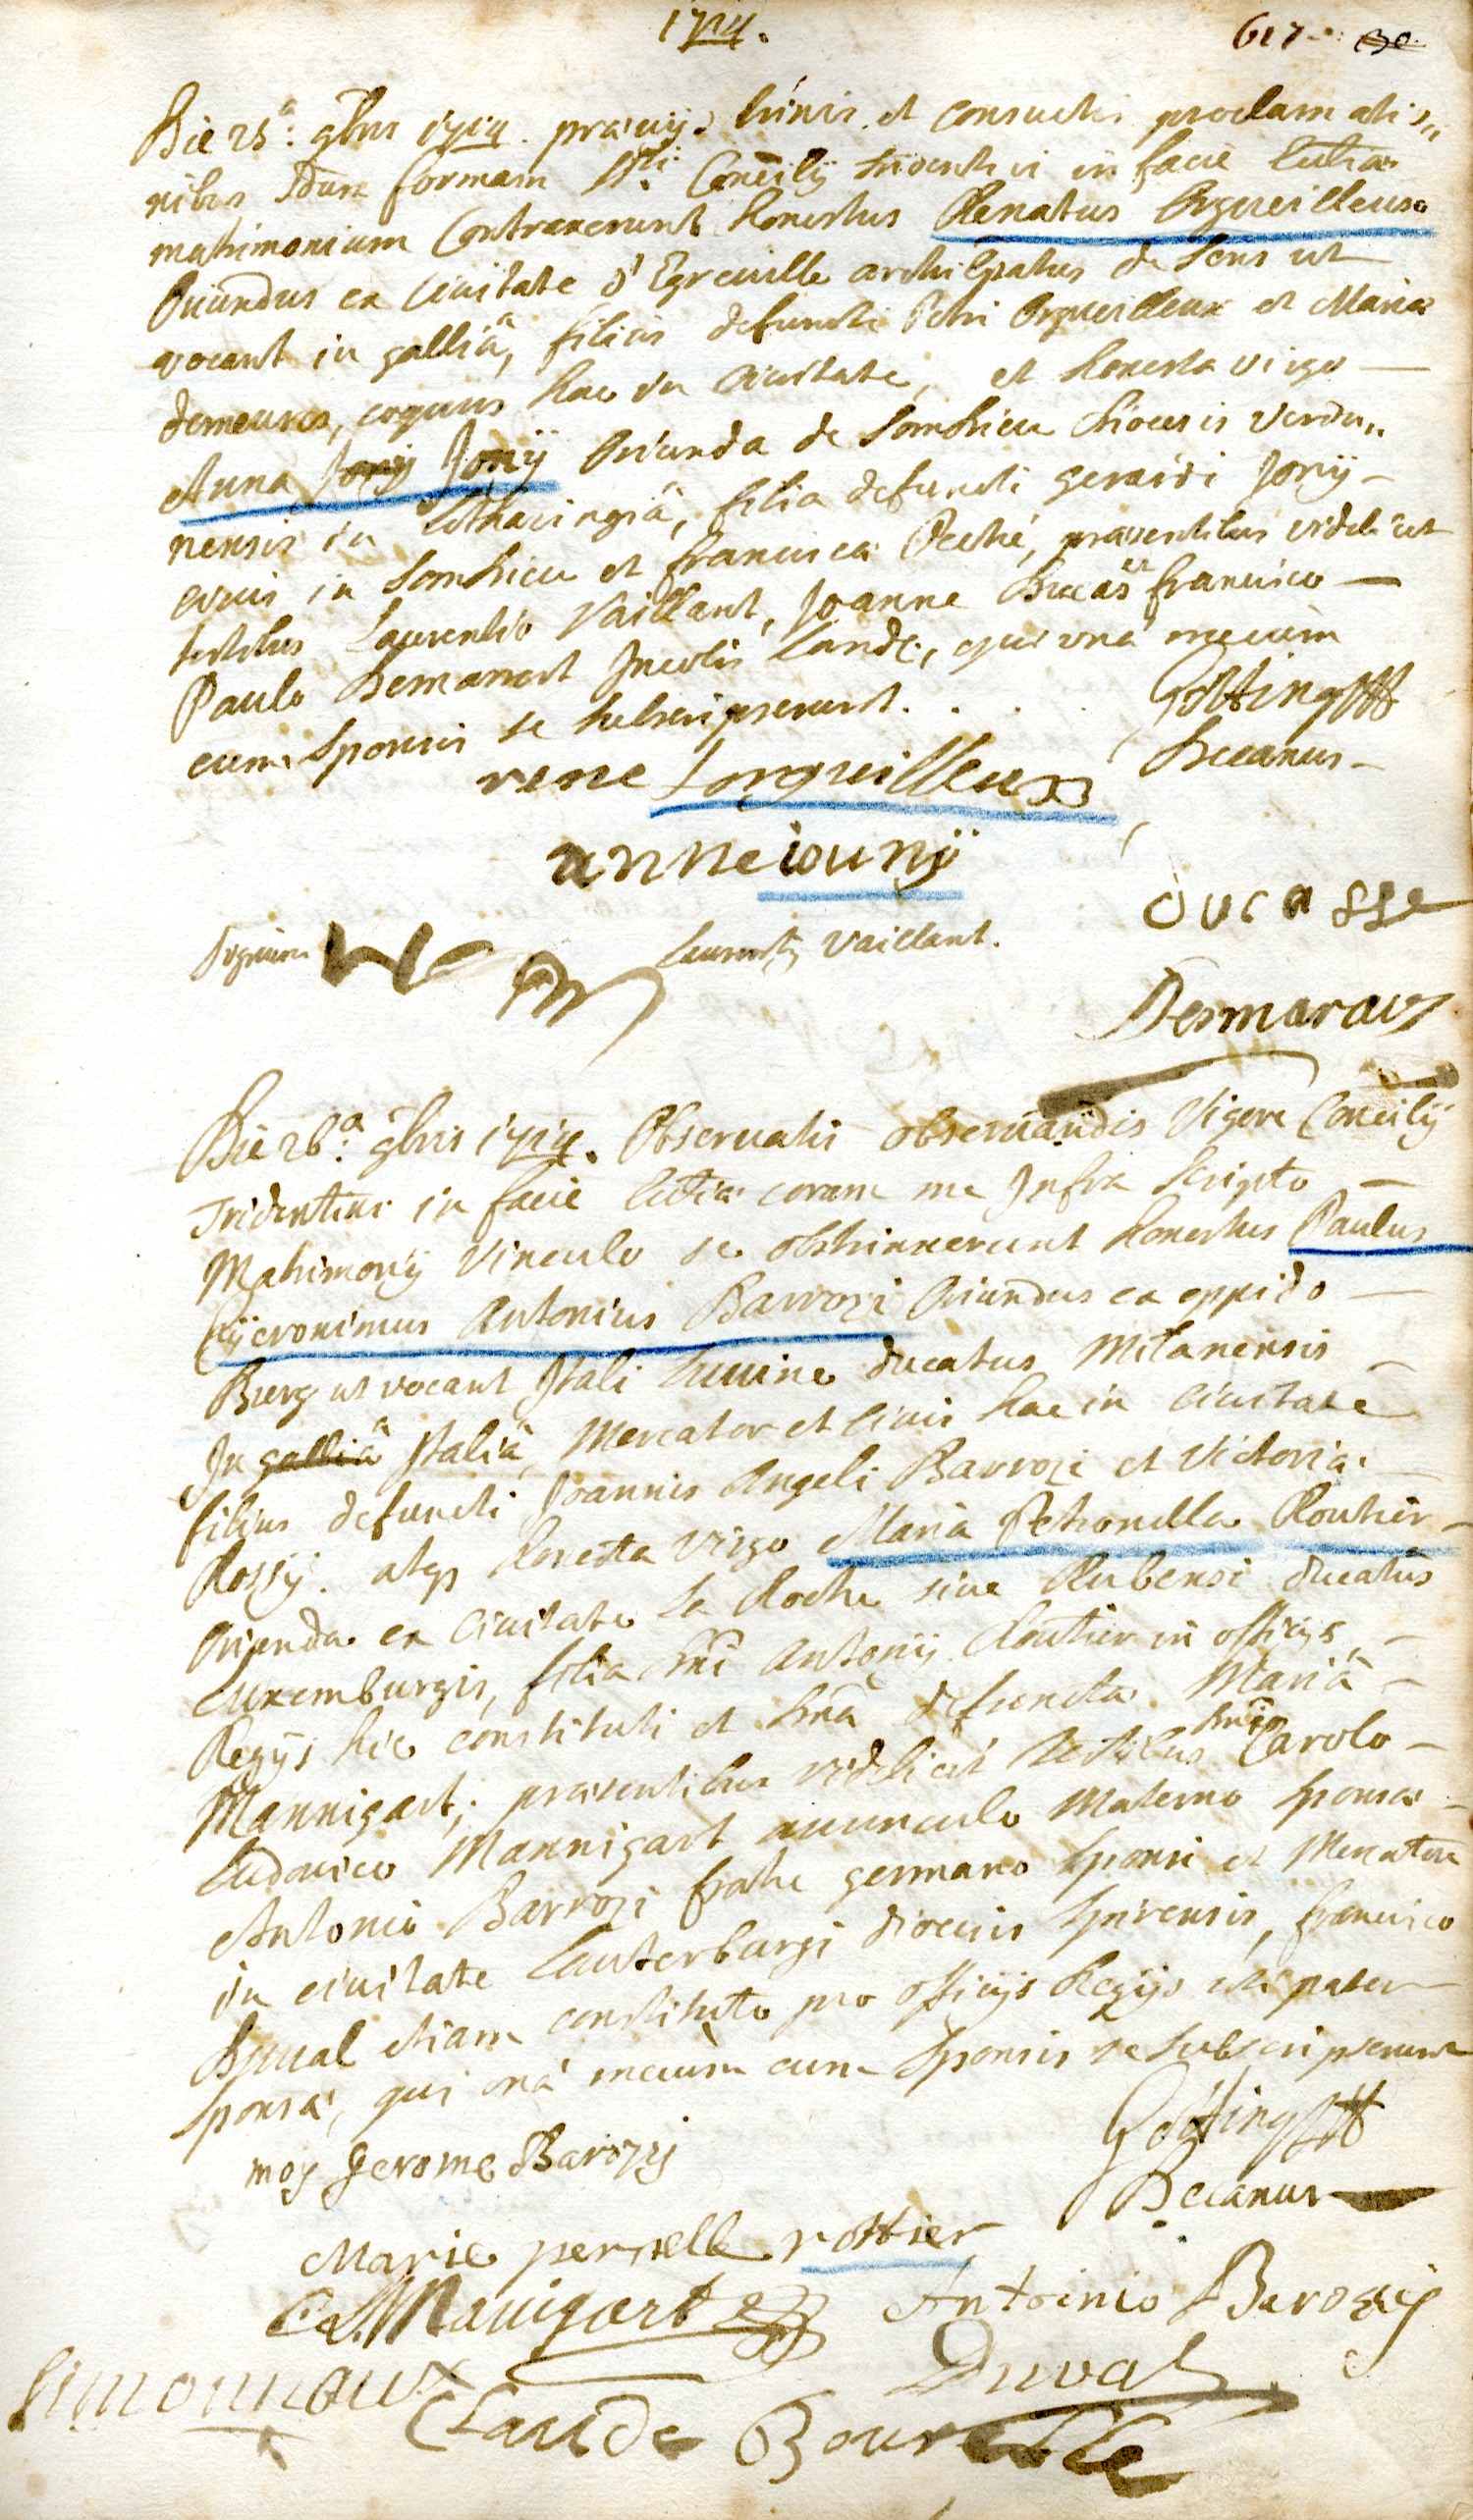 1714.
617 30.
Die 25a: 9bris 1714. praeviis trinis et consuetis proclamatio„
nibus iuxta formam Sti: Concilij tridentini in facie Ecclesiae
matrimonium Contraxerunt honestus Renatus Orgueilleux
Oriundus ex Civitate d'Egreville archiEpatus de Sens ut
vocant in galliâ, filius defuncti Petri Orgueilleux et Maria
demeures, coquus hac in Civitate, et honesta virgo
Anna Jony Jonij Oriunda de Sombrieu Dioecesis Verdu„
nensis in Lotharingiâ, filia defuncti gerardi Jonij
civis in Sombrieu et francisca Peché, praesentibus videlicet
testibus Laurentio Vaillant, Joanne Ducass francisco
Paulo Demarest Incolis Landae, qui unà mecum
cum Sponsis se subscripserunt. . . . Götting
Decanus
rene Lorgueilleux
anne iounÿ
Signum Laurentz Vaillant. Ducasse
Desmarais
Die 26a: 9bris 1714. Observatis observandis Vigore Concilij
Tridentini in facie Ecclesiae coram me Infra Scripto
Matrimonij Vinculo se obstrinxerunt honestus Paulus
Hÿeronimus Antonius Barrozi Oriundus ex oppido
Burg ut vocant Itali Luvine ducatus Milanensis
In galliâ Italiâ, Mercator et Civis hac in Civitate
filius defuncti Joannis Angeli Barrozi et Victoria
Rossÿ. atqs honesta Virgo Maria Petronella Routier
Oriunda ex Civitate La Roche sive Rubensi ducatus
Luxemburgis, filia dni Antonij Routier in officijs
Regijs hic constituti et dna defuncta Mariâ
Mannigart; praesentibus videlicet testibus dnio Carolo
Ludovico Mannigart avunculo Materno Sponsa
Antonio Barrozi fratre germano Sponsi et Mercatore
in civitate Lauterburgi dioecesis Spirensis, francisco
Duval etiam constituto pro officijs Regijs uti pater
Sponsa, qui unà mecum cum Sponsis se subscripserunt
Götting
moy Jerome Barozzij Decanus
Marie pernelle rottier
C.L. Manigart Antoinio Barozzij
Simonnaux Duval
Claude Bour